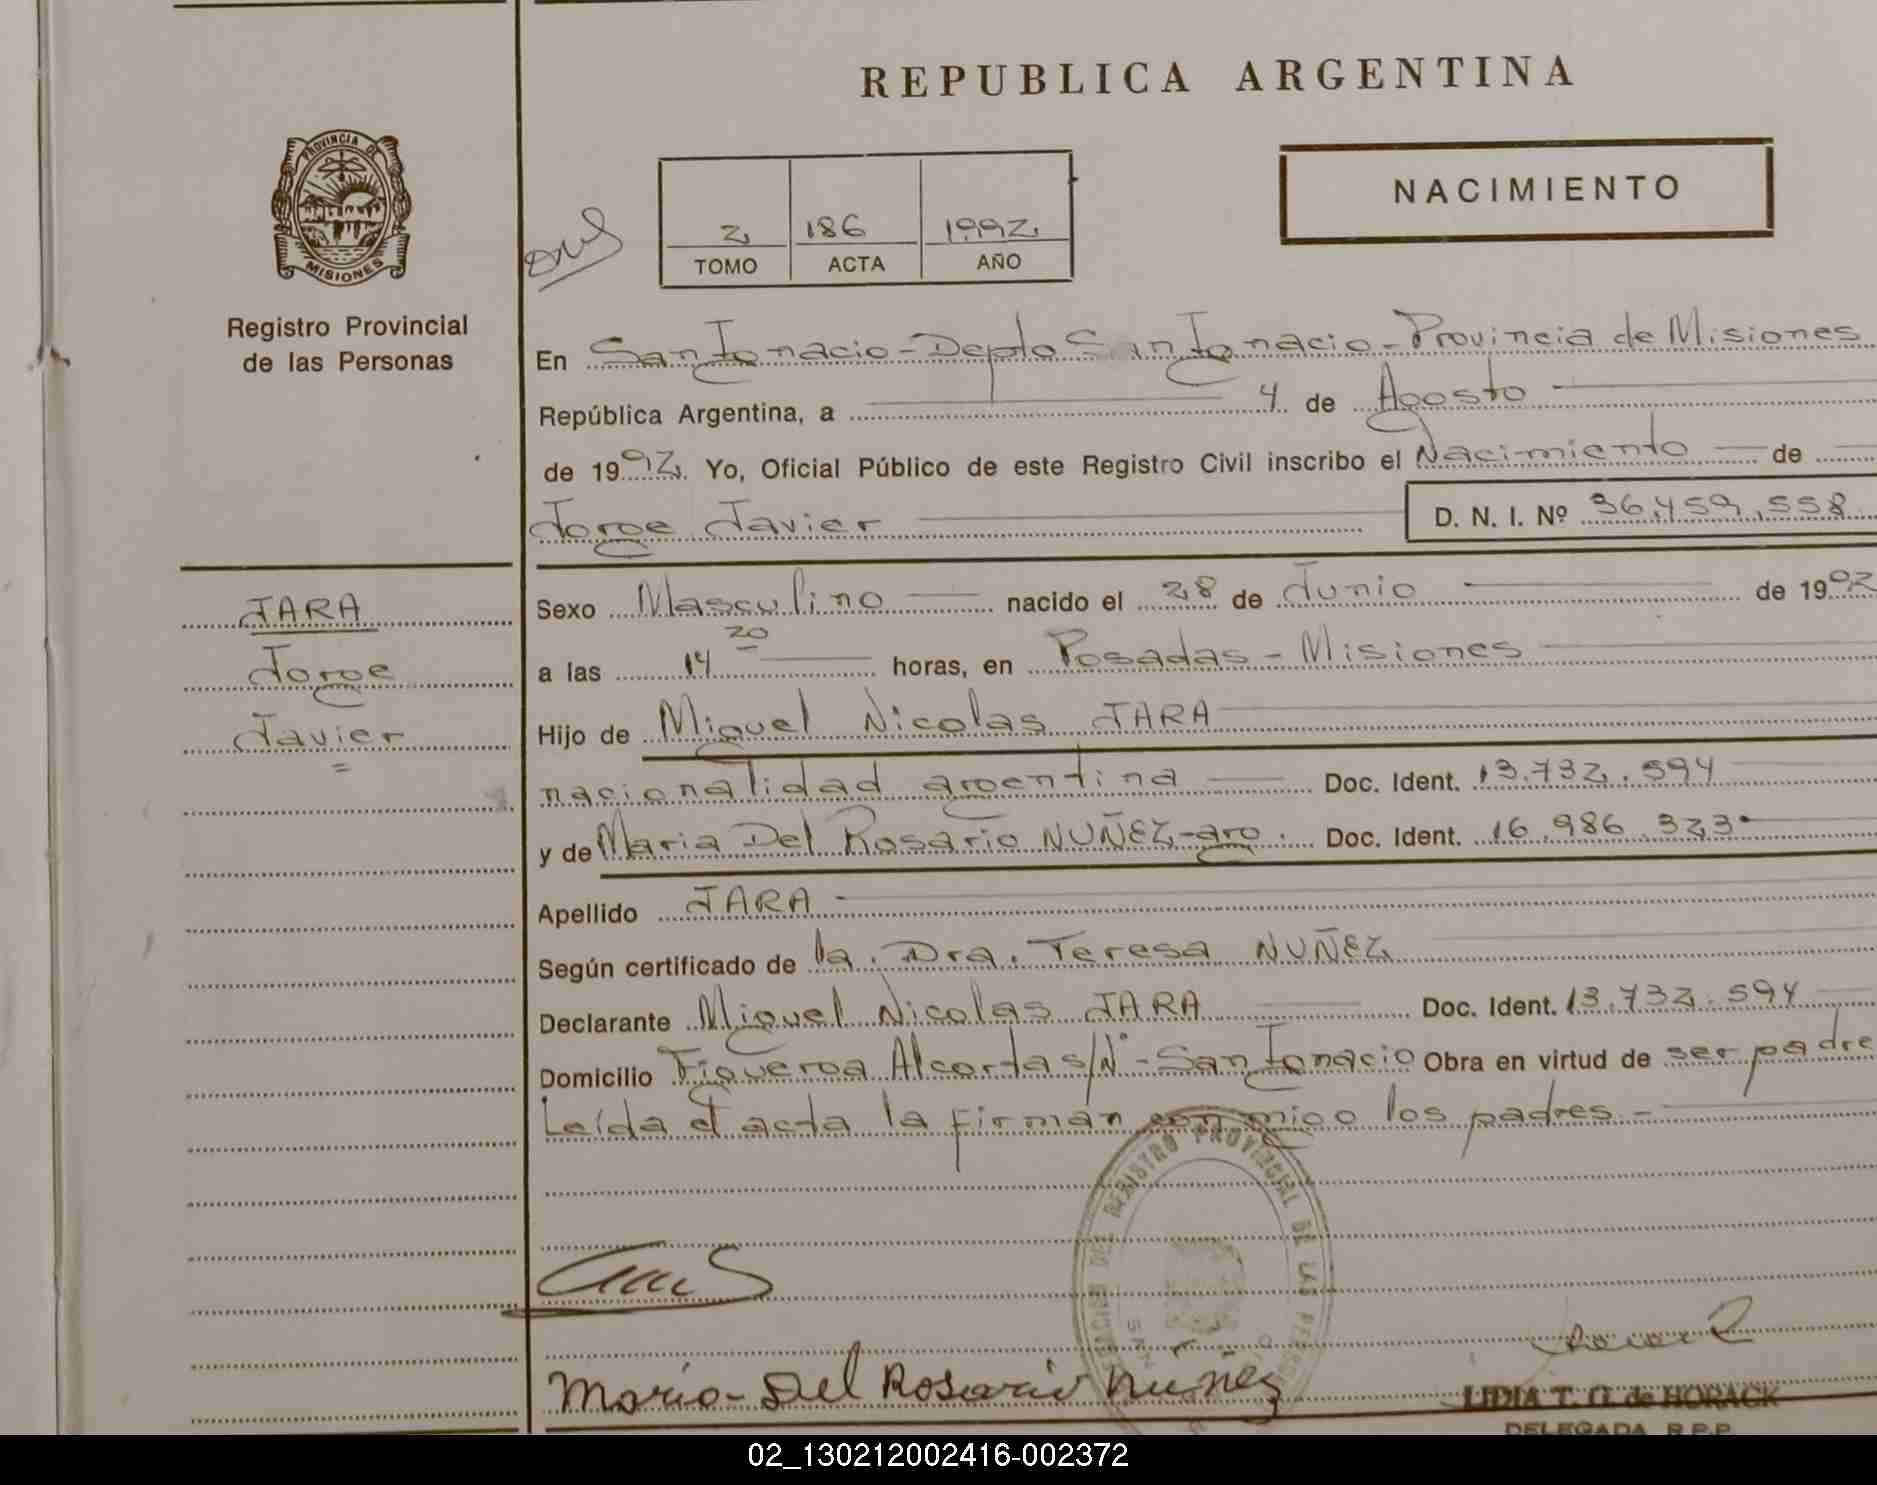 REPUBLICA ARGENTINA
PROVINCIA DE
MISIONES
Registro Provincial
de las Personas
2 186 1992
TOMO ACTA AÑO
NACIMIENTO
En San Ignacio - Depto San Ignacio - Provincia de Misiones
República Argentina, a 4 de Agosto
de 1992. Yo, Oficial Público de este Registro Civil inscribo el Nacimiento de
Jorge Javier D. N. I. Nº 36.459.558
JARA
Jorge
Javier
Sexo Masculino nacido el 28 de Junio de 1992
a las 14 20 horas, en Posadas - Misiones
Hijo de Miguel Nicolas JARA
nacionalidad argentina Doc. Ident. 13.732.594
y de Maria Del Rosario NUÑEZ - arg. Doc. Ident. 16.986.323
Apellido JARA
Según certificado de la Dra. Teresa NUÑEZ
Declarante Miguel Nicolas JARA Doc. Ident. 13.732.594
Domicilio Figueroa Alcorta s/Nº - San Ignacio Obra en virtud de ser padre
Leída el acta la firman conmigo los padres -
REGISTRO PROVINCIAL DE LAS
Maria - Del Rosario Nuñez
LIDIA T. G. de HORACK
DELEGADA R.P.P.
02_130212002416-002372